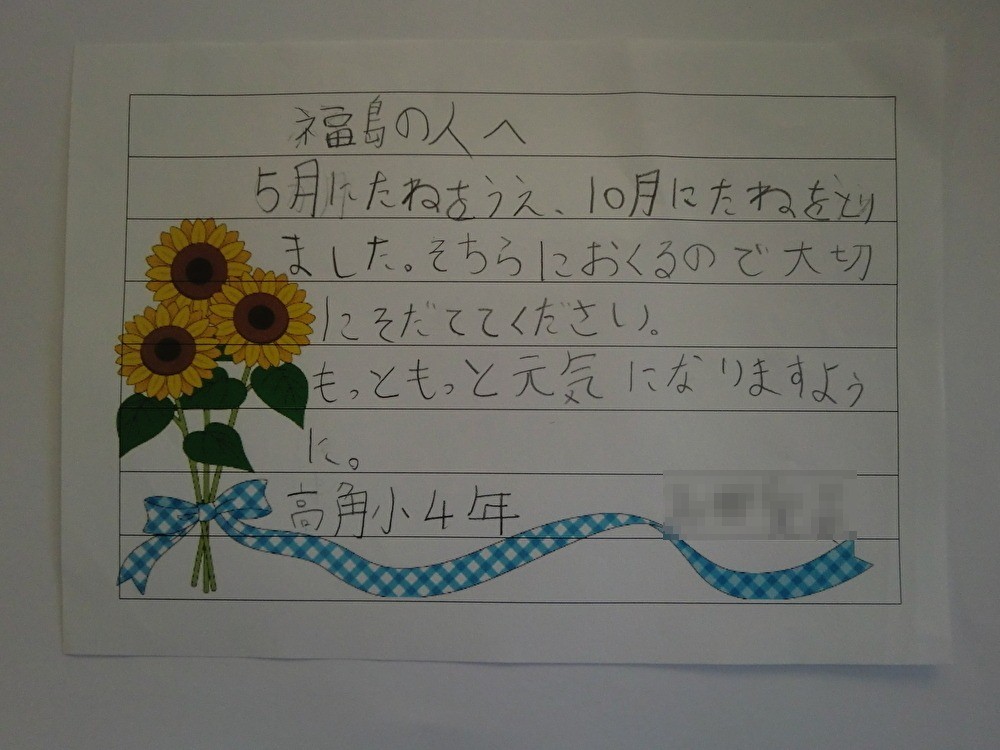 福島の人へ
5月にたねをうえ、10月にたねをとり
ました。そちらにおくるので大切
にそだててください。
もっともっと元気になりますよう
に。
高角小4年